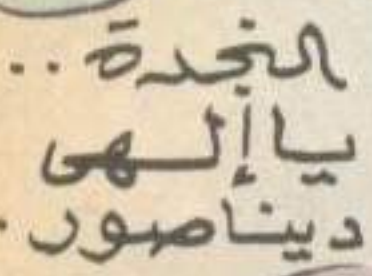 النجدة ..
يا إلهى
ديناصور .